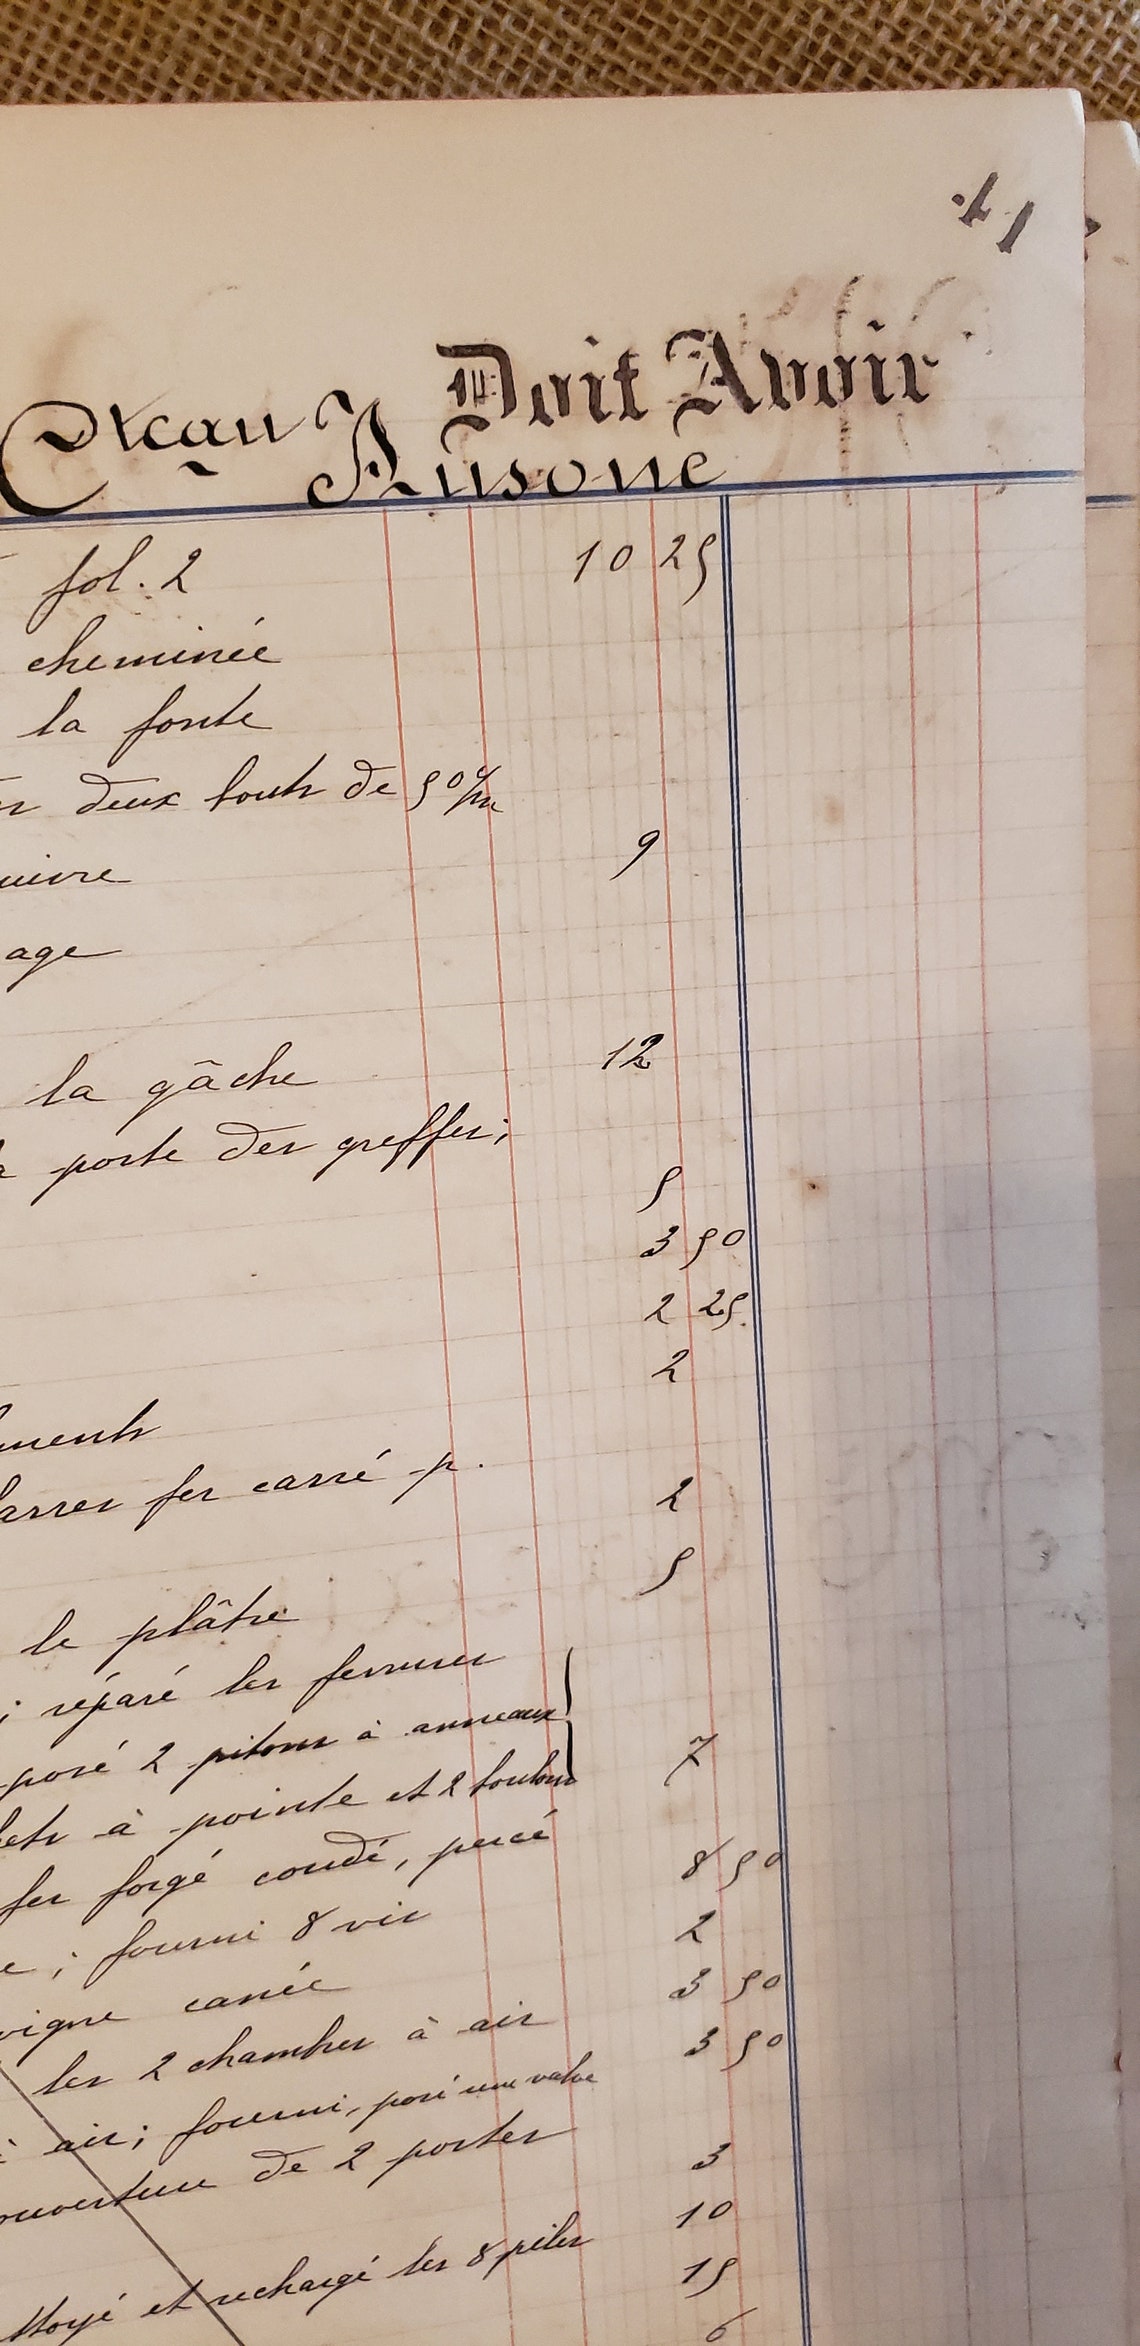 Doit Avoir
Ausone
fol. 2 10 25
cheminée
la fonte
deux bouts de 50 c/m
uivre 9
age
la gâche 12
porte des greffes;
5
3 50
2 25
2
ments
barres fer carré p.
2
5
le plâtre
; réparé les ferrures
posé 2 pitons à anneaux
lets à pointe et 2 boulons 7
fer forgé coudé, percé
e ; fourni 8 vis 8 50
vigne carrée 2
les 2 chambres à air 3 50
à air; fourni, posé une valve 3 50
ouverture de 2 portes
3
10
ttoyé et rechargé les 8 piles 15
6